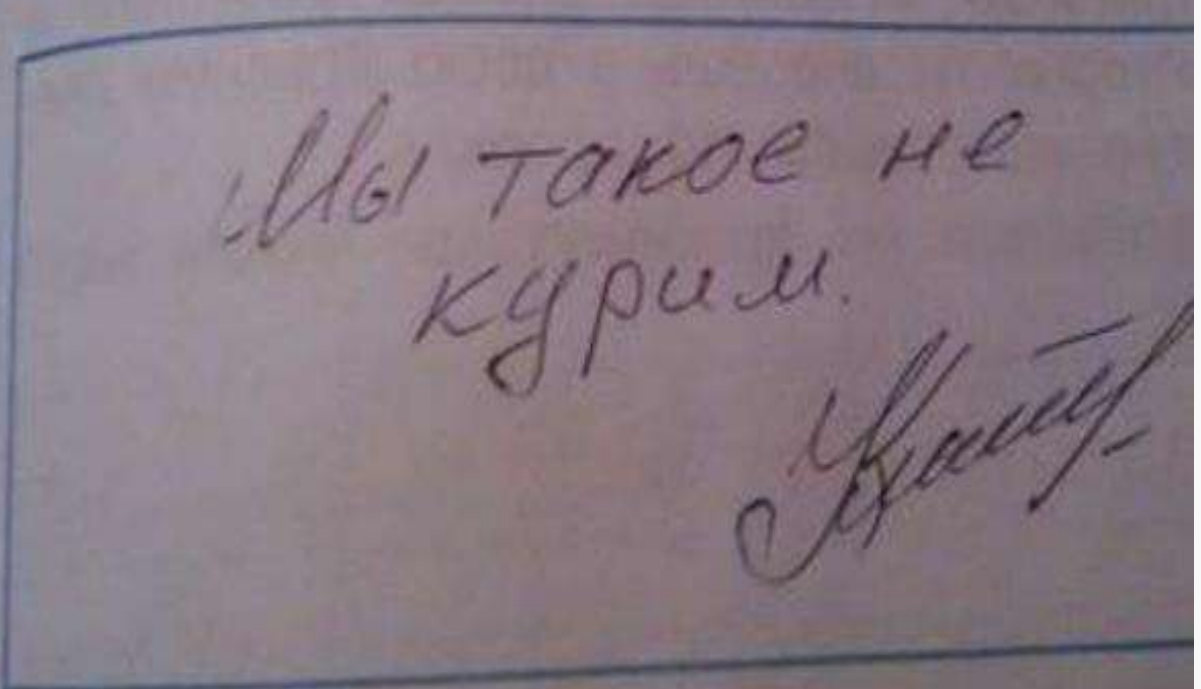 Мы такое не
курим.